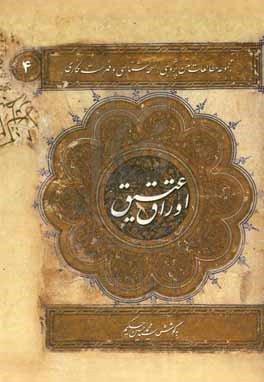 مجموعه مطالعات متن‌پژوهی، نسخه‌شناسی و فهرست‌نگاری
۴
اوراق عتیق
به کوشش سید محمدحسین حکیم